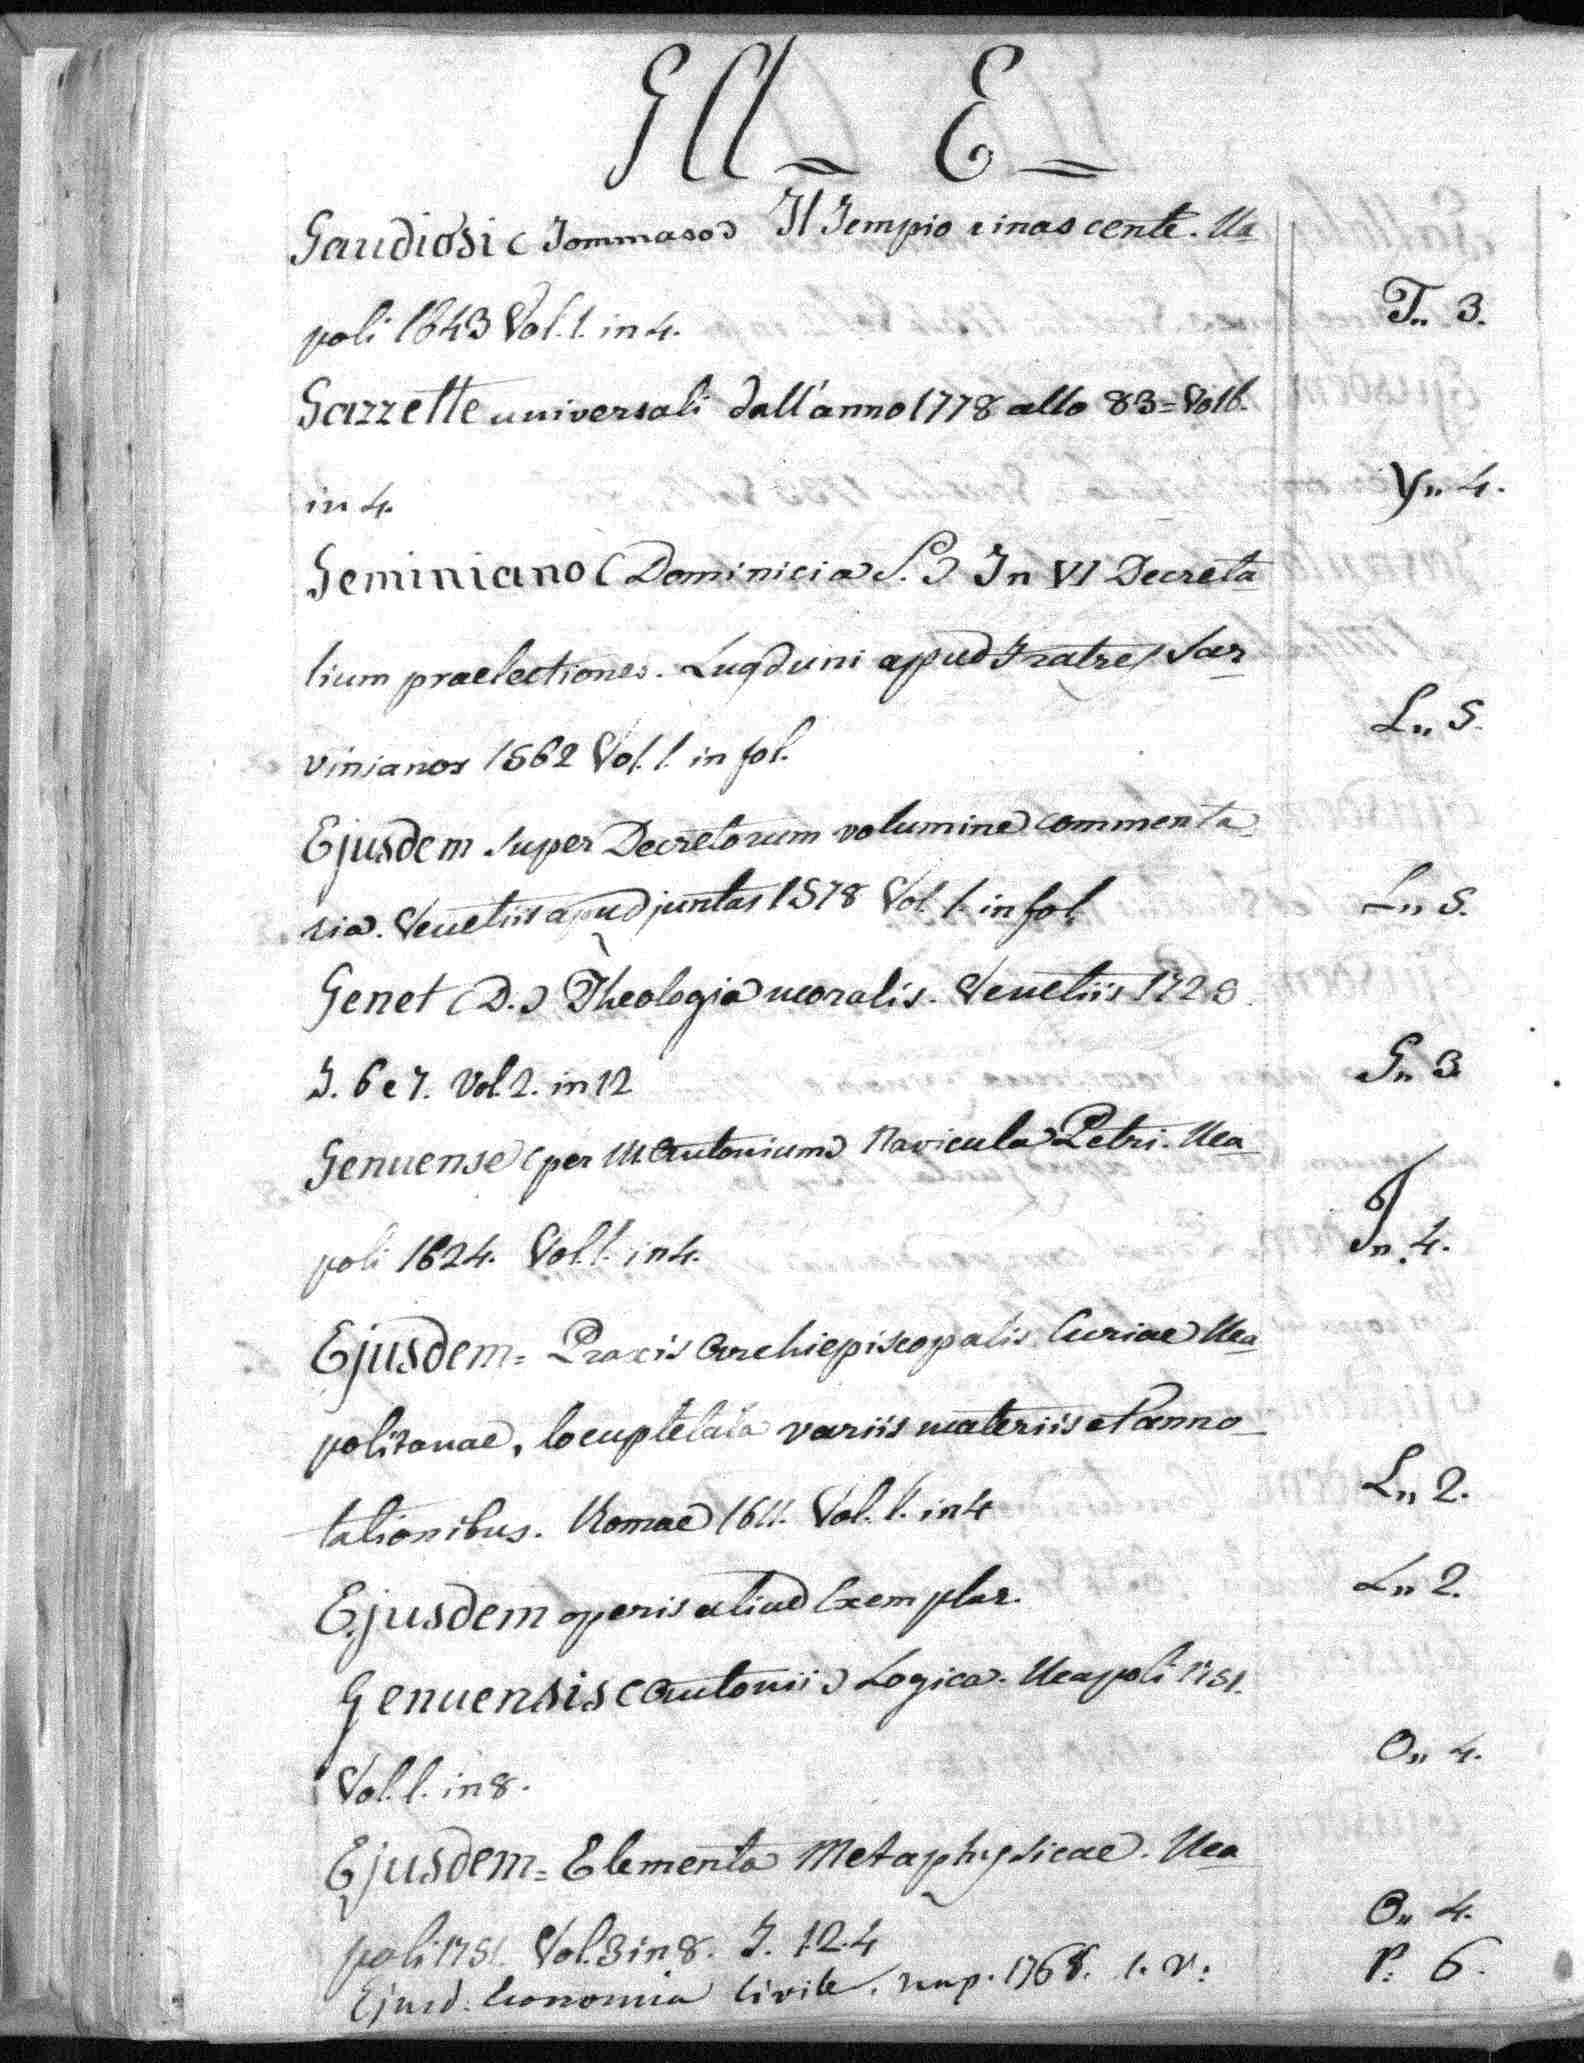 GA = E =
Gaudiosi (Tommaso) Il Tempio rinascente. Na
poli 1643 Vol. 1. in 4. T" 3.
Gazzette universali dall'anno 1778 allo 83 = Vol 6.
in 4. Y" 4.
Geminiano (Dominici a S.) In VI Decreta
lium praelectiones. Lugduni apud Fratres Sar
vinianos 1562 Vol. 1. in fol. L" 5.
Ejusdem super Decretorum volumine commenta
ria. Venetiis apud juntas 1578 Vol. 1. in fol. L" 5.
Genet (D.) Theologia moralis. Venetiis 172
T. 6 e 7. Vol. 2. in 12 G" 3
Genuense (per M. Antonium) Navicula Petri. Nea
poli 1624. Vol. 1. in 4. 4.
Ejusdem = Praxis Archiepiscopalis Curiae Nea
politanae, locupletata variis materiis et anno
tationibus. Romae 1611. Vol. 1. in 4 L" 2.
Ejusdem operis aliud Exemplar. L" 2.
Genuensis (Antonii) Logica. Neapoli 1751.
Vol. 1. in 8. O" 4.
Ejusdem = Elementa Metaphysicae. Nea
poli 1751. Vol. 3 in 8. T. 1.2.4 O" 4.
Ejusd. Economia Civile. Nap. 1768. 1. v: P: 6.